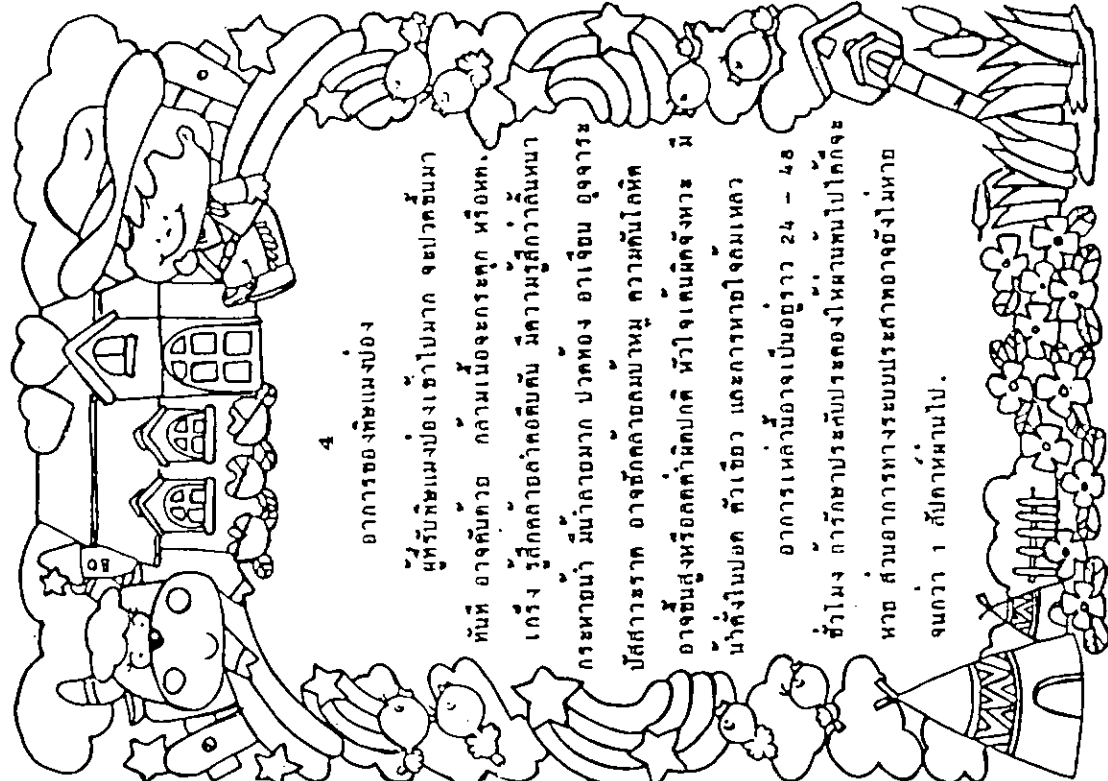 4
อาการของพิษแมงป่อง
ผู้ที่รับพิษแมงป่องเข้าไปมาก จะปวดขึ้นมา
ทันที อาจคันด้วย กล้ามเนื้อจะกระตุก หรือหด,
เกร็ง รู้สึกคล้ายลำคอตีบตัน มีความรู้สึกว่าลิ้นหนา
กระหายน้ำ มีน้ำลายมาก ปวดท้อง อาเจียน อุจจาระ
ปัสสาวะราด อาจชักคล้ายลมบ้าหมู ความดันโลหิต
อาจขึ้นสูงหรือลดต่ำผิดปกติ หัวใจเต้นผิดจังหวะ มี
น้ำคั่งในปอด ตัวเขียว และการหายใจล้มเหลว
อาการเหล่านี้อาจเป็นอยู่ราว 24 - 48
ชั่วโมง ถ้ารักษาประคับประคองให้ผ่านพ้นไปได้ก็จะ
หาย ส่วนอาการทางระบบประสาทอาจยังไม่หาย
จนกว่า 1 สัปดาห์ผ่านไป.
BO